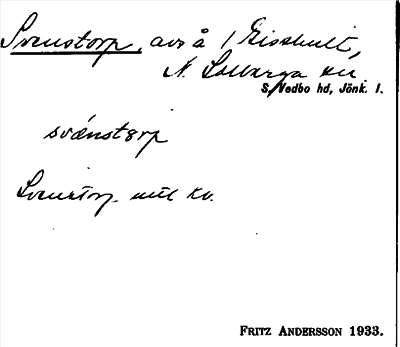 Svenstorp, avs å 1 Gisshult,
N. Solberga sn.
S. Vedbo hd, Jönk. l.
svǽnstɵrp
Svenstorp. mtl kv.
FRITZ ANDERSSON 1933.